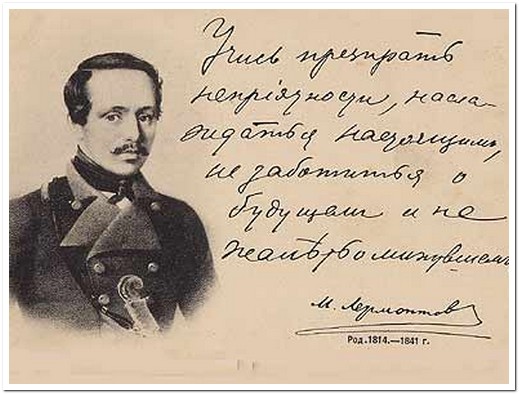 Учись презирать
непріятности, насла-
ждаться настоящимъ,
не заботиться о
будущем и не
жалѣть о минувшем
М. Лермонтов
Род. 1814.—1841 г.